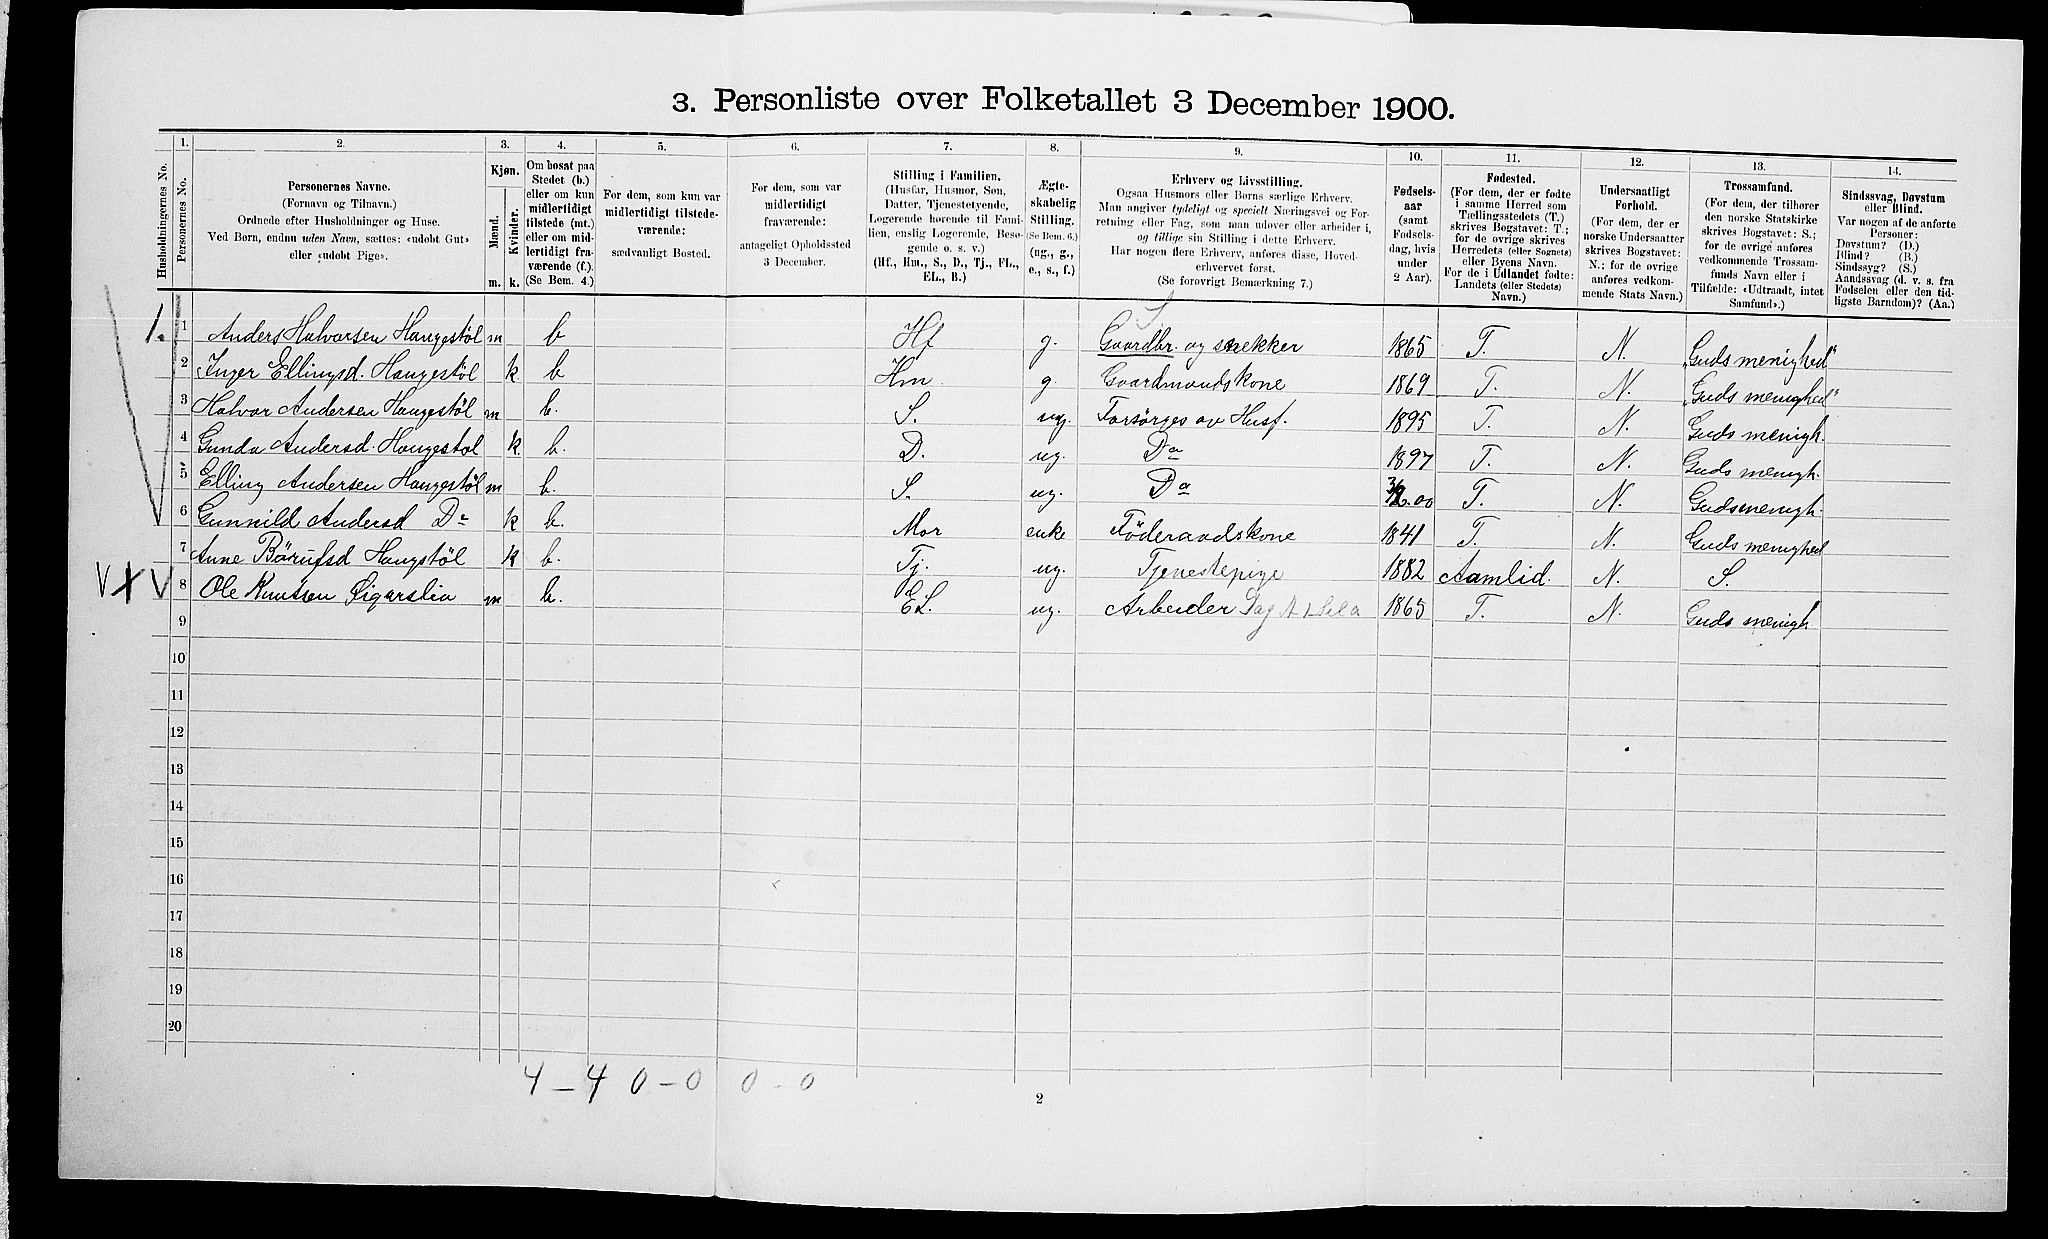 3. Personliste over Folketallet 3 December 1900.
Husholdningernes No.
1. Personernes No.
2. Personernes Navne.
(Fornavn og Tilnavn.)
Ordnede efter Husholdninger og Huse.
Ved Børn, endnu uden Navn, sættes: «udøbt Gut»
eller «udøbt Pige».
3. Kjøn.
Mænd. m.
Kvinder. k.
4. Om bosat paa
Stedet (b.)
eller om kun
midlertidigt
tilstede (mt.)
eller om mid-
lertidigt fra-
værende (f.).
(Se Bem. 4.)
5. For dem, som kun var
midlertidigt tilstede-
værende:
sædvanligt Bosted.
6. For dem, som var
midlertidigt
fraværende:
antageligt Opholdssted
3 December.
7. Stilling i Familien.
(Husfar, Husmor, Søn,
Datter, Tjenestetyende,
Logerende hørende til Fami-
lien, enslig Logerende, Besø-
gende o. s. v.)
(Hf., Hm., S., D., Tj., FL.,
EL., B.)
8. Ægte-
skabelig
Stilling.
(Se Bem. 6.)
(ug., g.,
e., s., f.)
9. Erhverv og Livsstilling.
Ogsaa Husmors eller Børns særlige Erhverv.
Man angiver tydeligt og specielt Næringsvei og For-
retning eller Fag, som man udøver eller arbeider i,
og tillige sin Stilling i dette Erhverv.
Har nogen flere Erhverv, anføres disse, Hoved-
erhvervet først.
(Se forøvrigt Bemærkning 7.)
10. Fødsels-
aar
(samt
Fødsels-
dag, hvis
under
2 Aar).
11. Fødested.
(For dem, der er fødte
i samme Herred som
Tællingsstedets (T.)
skrives Bogstavet: T.;
for de øvrige skrives
Herredets (eller Sognets)
eller Byens Navn.
For de i Udlandet fødte:
Landets (eller Stedets)
Navn.)
12. Undersaatligt
Forhold.
(For dem, der er
norske Undersaatter
skrives Bogstavet:
N.; for de øvrige
anføres vedkom-
mende Stats Navn.)
13. Trossamfund.
(For dem, der tilhører
den norske Statskirke
skrives Bogstavet: S.;
for de øvrige anføres
vedkommende Trossam-
funds Navn eller i
Tilfælde: «Udtraadt, intet
Samfund».)
14. Sindssvag, Døvstum
eller Blind.
Var nogen af de anførte
Personer:
Døvstum? (D.)
Blind? (B.)
Sindssyg? (S.)
Aandssvag (d. v. s. fra
Fødselen eller den tid-
ligste Barndom)? (Aa.)
1. 1 Anders Halvorsen Haugestöl m b Hf g. Gaardbr. og snekker 1865 T. N. „Guds menighed"
2 Inger Ellingsd. Haugestöl k. b Hm. g. Gaardmandskone 1869 T. N. „Guds menighed"
3 Halvor Andersen Haugestöl m b. S. ug. Forsörges av Husf. 1895 T. N. Guds menigh.
4 Gunda Andersd. Haugestöl k. b. D. ug. Do 1897 T. N. Guds menigh.
5 Elling Andersen Haugestöl m b. S. ug. Do 00 T. N. Gudsmenigh.
6 Gunnild Andersd Do k b. Mor enke Föderaadskone 1841 T. N. Guds menighed
7 Anne Börufsd Haugstöl k b. Tj. ug. Tjenestepige 1882 Aamlid. N. S.
V X V 8 Ole Knutsen Sigarslia m b. EL. ug. Arbeider 1865 T. N. Guds menigh
9
10
11
12
13
14
15
16
17
18
19
20
4 – 4 0 – 0 0 – 0
2